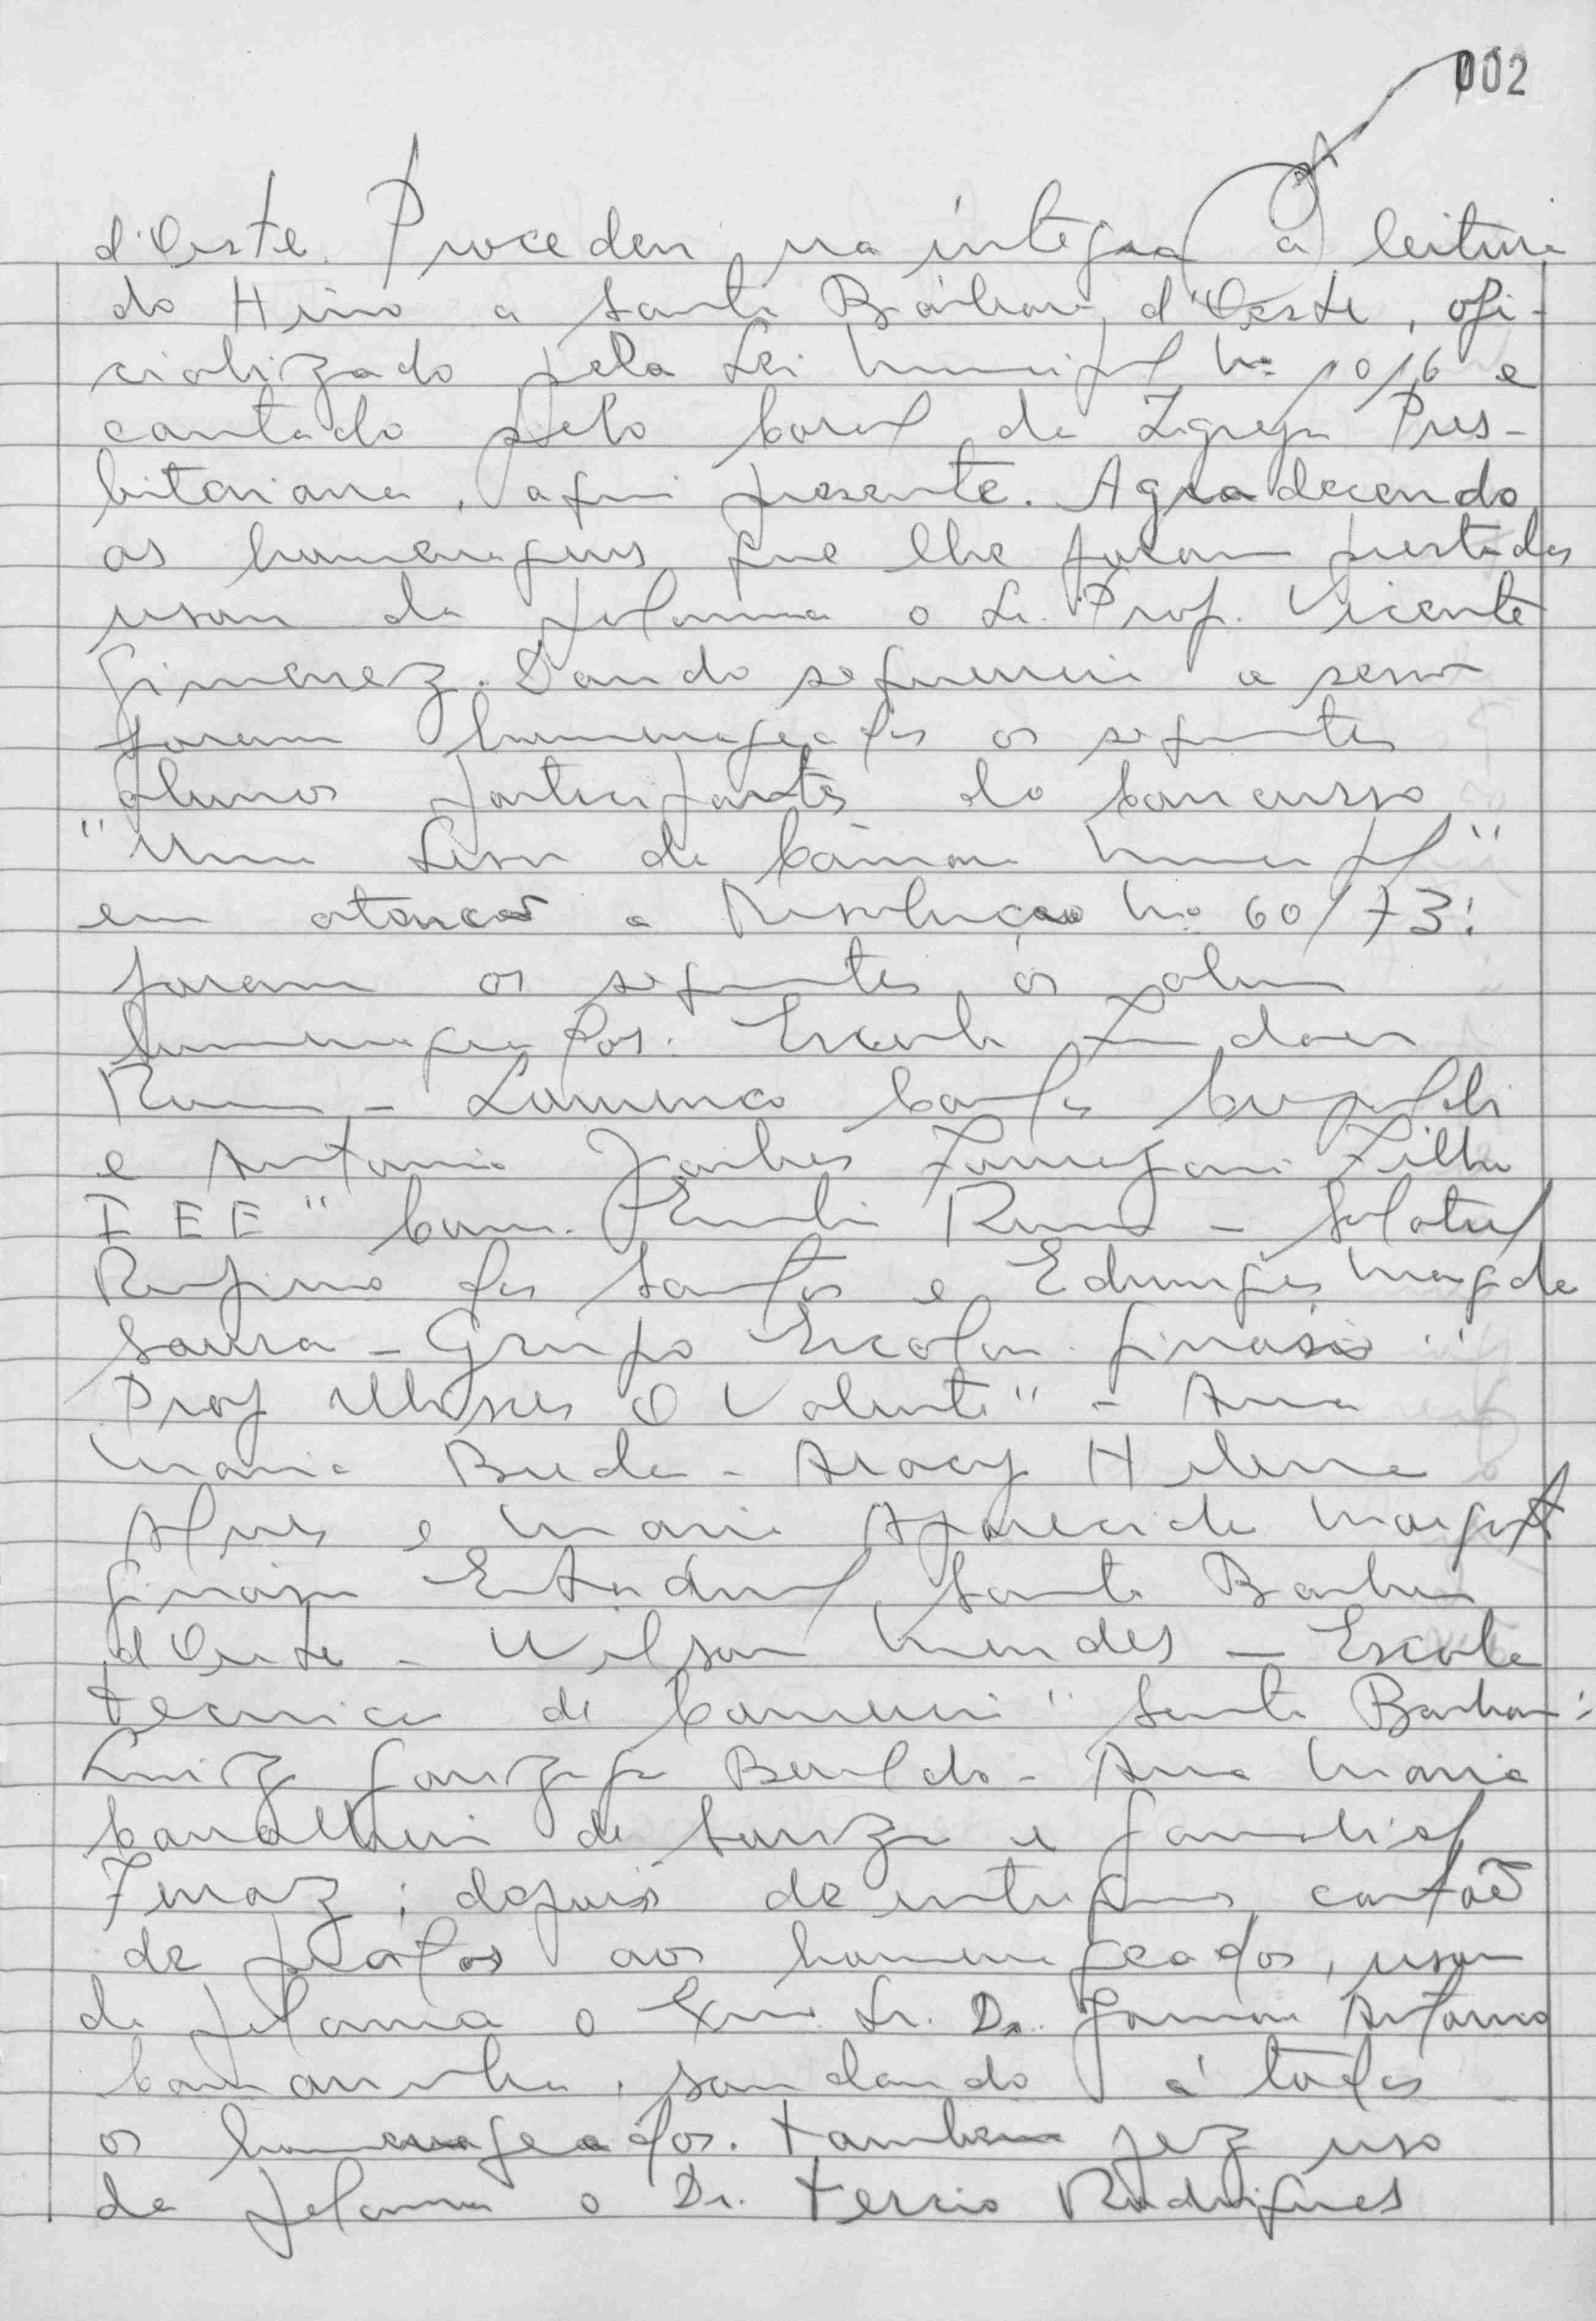 002
d'Oeste. Procedeu, na íntegra a leitura
do Hino a Santa Bárbara, d'Oeste, ofi-
cializado pela Lei Municipal nº 1016 e
cantado pelo Coral da Igreja Pres-
biteriana, aqui presente. Agradecendo
as homenagens que lhe foram prestadas
usou da palavra o Sr. Prof. Vicente
Gimenez. Dando sequencia a sessão
foram homenageados os seguintes
alunos participantes do Concurso
"Uma Sessão da Câmara Municipal"
em atenção a Resolução nº 60/73:
foram os seguintes os alunos
homenageados: Escola
- Lourenço Carlos
e Antonio Filho
IEE "Com. Emilio Romi -
Rufino dos Santos e Edwiges Magda
Grupo Escolar Ginásio "
Prof Ulisses O Valente" - Ana
Maria Bueda - Aracy Helena
Alves e Maria Aparecida
Ginásio Estadual Santa Barbara
d'Oeste - Wilson Mendes - Escola
Técnica de Comercio "Santa Barbara:
Luiz Gonzaga Beraldo - Ana Maria
Cavalheiro de Souza e
Ferraz; depois de entregues cartão
de prata aos homenageados, usou
da palavra o Exmo Sr. Dr. Antonio
saudando á todos
os homenageados. Tambem fez uso
da palavra o Dr. Tercio Rodrigues